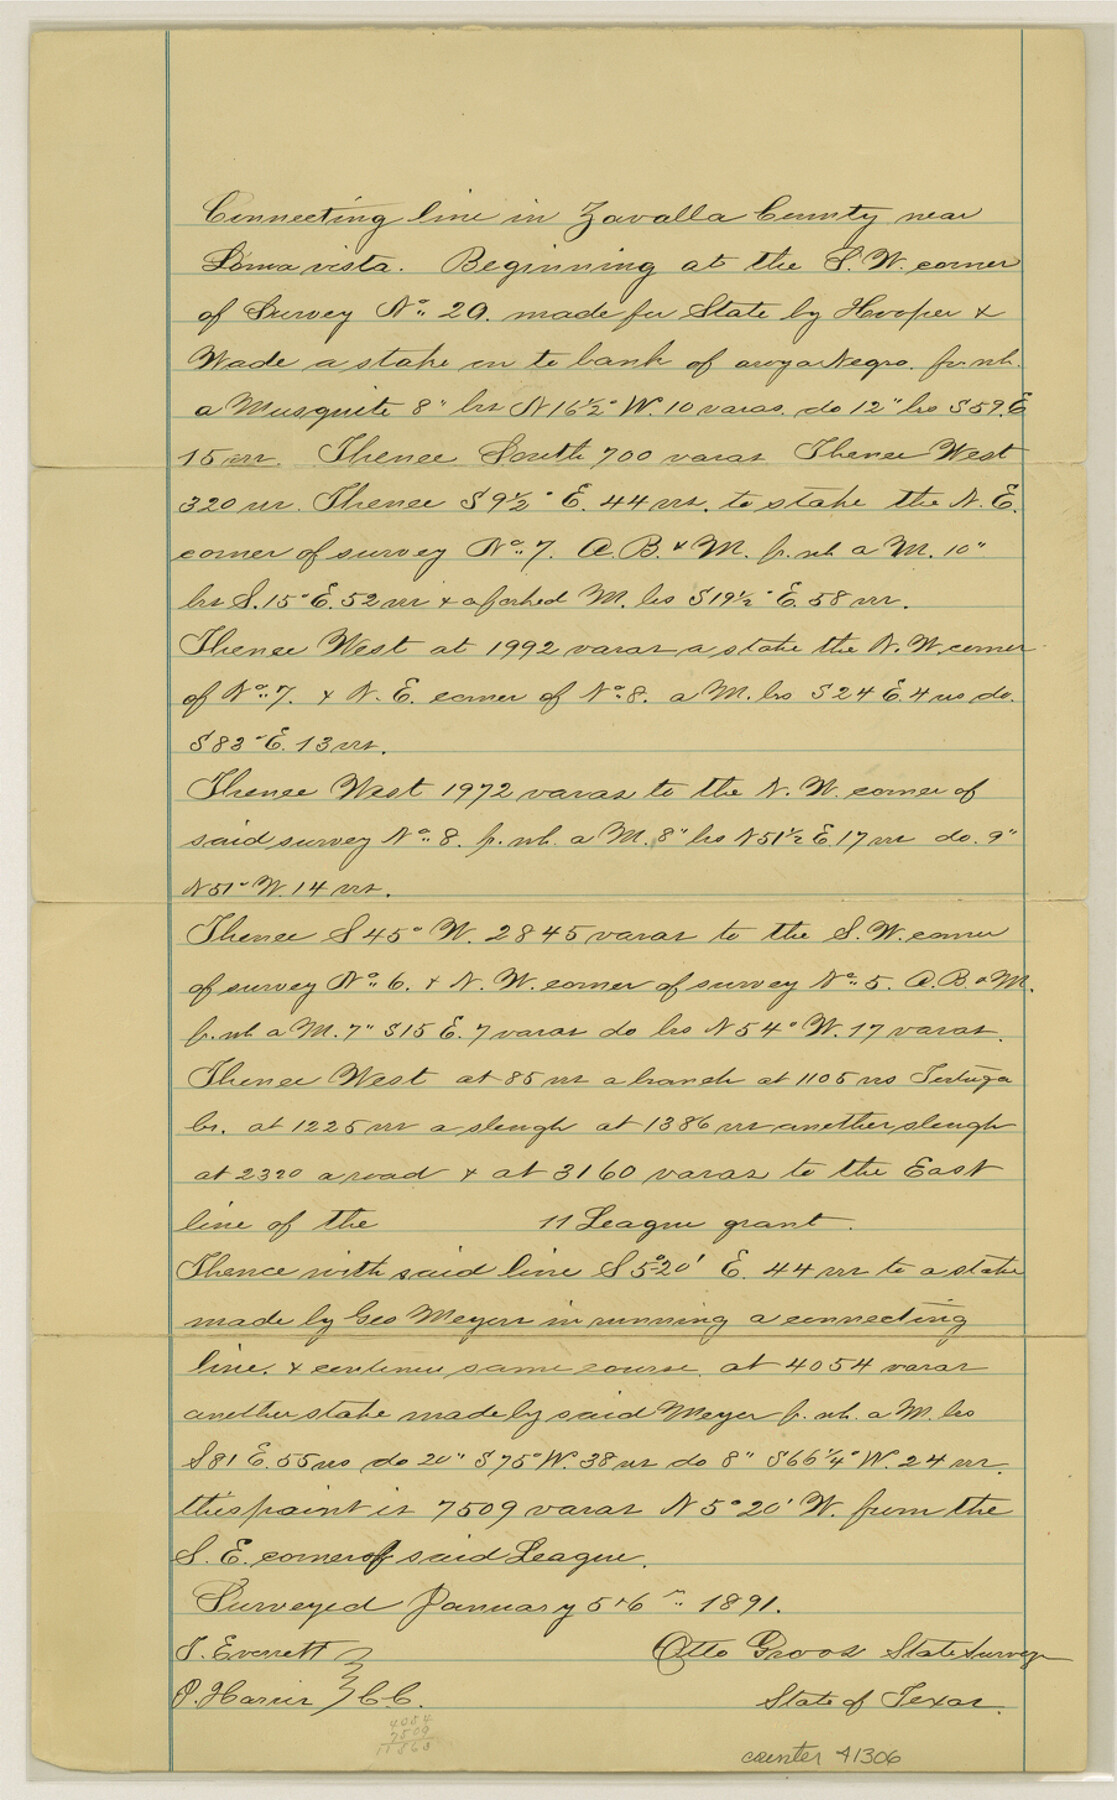 Connecting line in Zavalla County near
Loma vista. Beginning at the S. W. corner
of Survey No. 20. made for State by Hooper &
Wade a stake on to bank of aroya Negro. fr. wh.
a Musquite 8" brs N 16½° W. 10 varas. do 12" brs S 59. E
15 vrs. Thence South 700 varas Thence West
320 vrs. Thence S 9½° E. 44 vrs. to stake the N. E.
corner of survey No. 7. A. B. & M. fr. wh a M. 10"
brs S. 15° E. 52 vrs & a forked M. brs S 19½° E. 58 vrs.
Thence West at 1992 varas a stake the N. W. corner
of No. 7. & N. E. corner of No. 8. a M. brs S 24 E. 4 vrs do.
S 83° E. 13 vrs.
Thence West 1972 varas to the N. W. corner of
said survey No. 8. fr. wh. a M. 8" brs N 51½ E. 17 vrs do. 9"
N 51° W. 14 vrs.
Thence S 45° W. 2845 varas to the S. W. corner
of survey No. 6. & N. W. corner of survey No. 5. A. B. & M.
fr. wh a M. 7" S 15 E. 7 varas do brs N 54° W. 17 varas.
Thence West at 85 vrs a branch at 1105 vrs Tortuga
br. at 1225 vrs a slough at 1386 vrs another slough
at 2320 a road & at 3160 varas to the East
line of the 11 League grant.
Thence with said line S 5°20' E. 44 vrs to a stake
made by Geo Meyers in running a connecting
line. & continue same course. at 4054 varas
another stake made by said Meyer fr. wh. a M. brs
S 81 E. 55 vrs do 20" S 75° W. 38 vrs do 8" S 66¼° W. 24 vrs.
this point is 7509 varas N 5° 20' W. from the
S. E. corner of said League.
Surveyed January 5 & 6 1891.
T. Everett Otto Groos State Surveyor
P. Harris } C. C. State of Texas.
4054
7509
11563
counter 41306